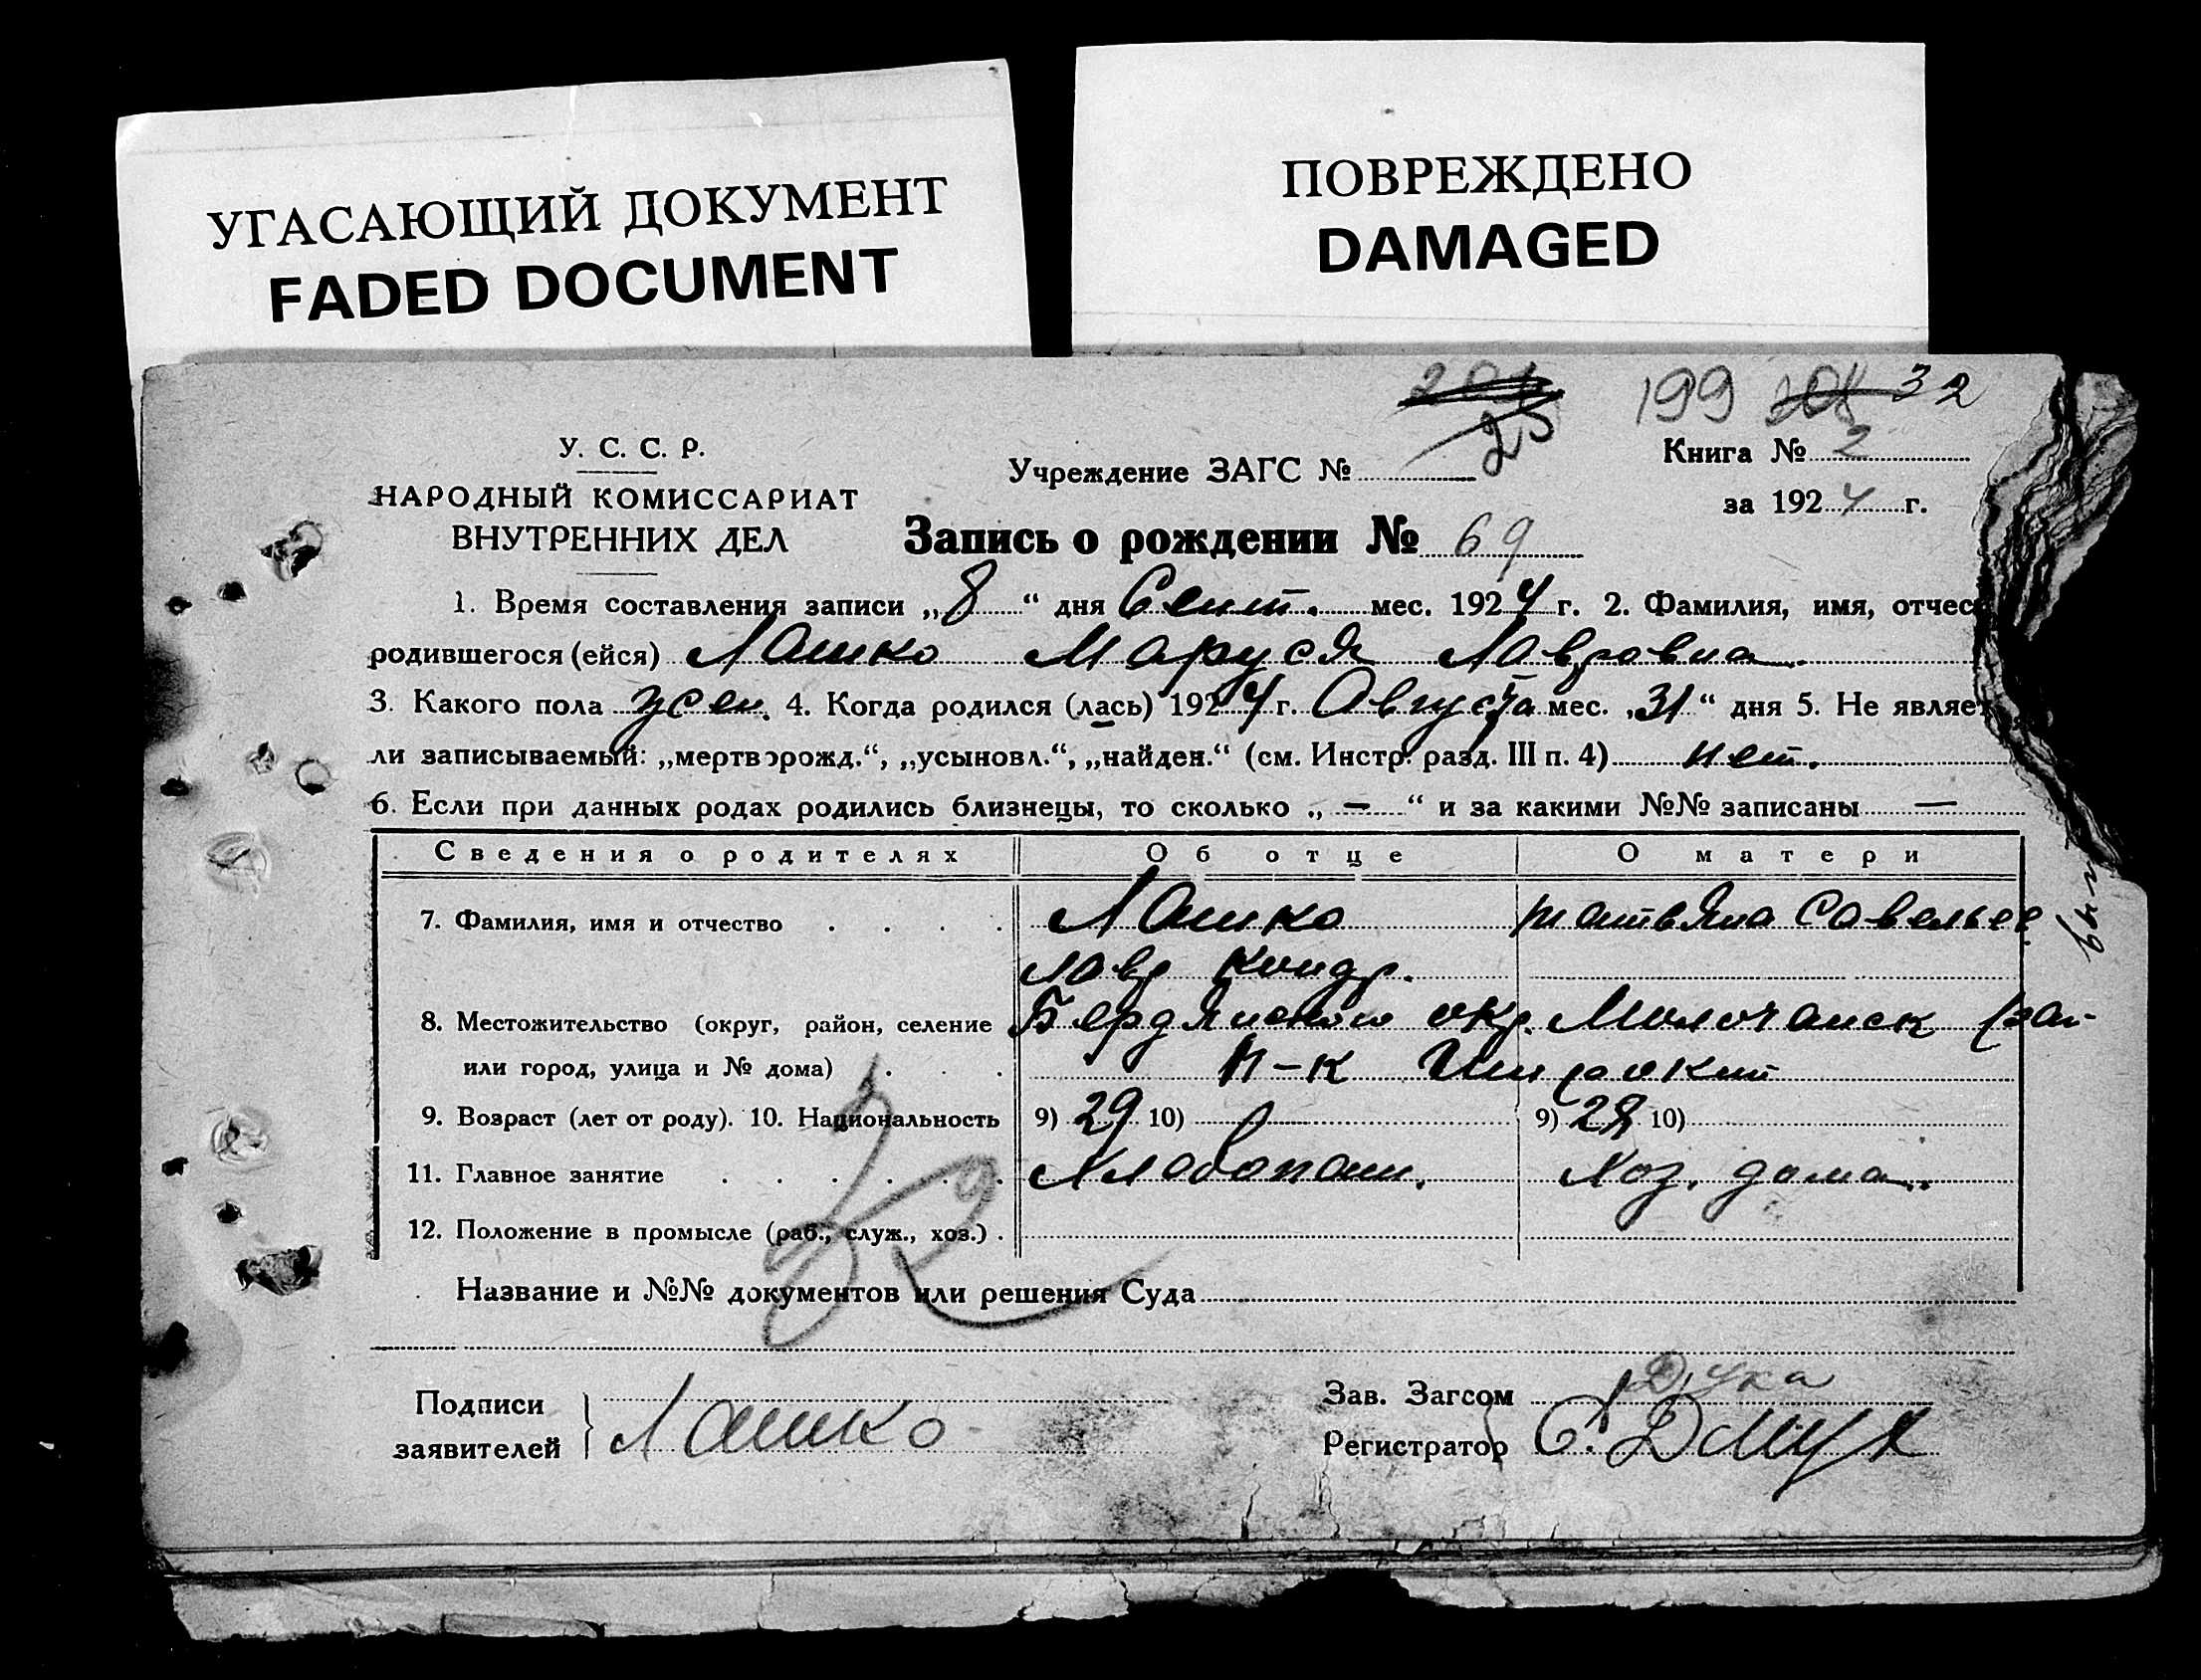 УГАСАЮЩИЙ ДОКУМЕНТ
FADED DOCUMENT
ПОВРЕЖДЕНО
DAMAGED
199 32
У. С. С. Р.
НАРОДНЫЙ КОМИССАРИАТ
ВНУТРЕННИХ ДЕЛ
Учреждение ЗАГС № 25
Книга № 2
за 1924 г.
Запись о рождении № 69
1. Время составления записи „8“ дня Сент. мес. 1924 г. 2. Фамилия, имя, отчес
родившегося (ейся) Лашко Маруся Лавровна
3. Какого пола жен. 4. Когда родился (лась) 1924 г. Августа мес. „31“ дня 5. Не являе
ли записываемый: „мертворожд.“, „усыновл.“, „найден.“ (см. Инстр. разд. III п. 4) нет.
6. Если при данных родах родились близнецы, то сколько „ — “ и за какими №№ записаны —
Сведения о родителях Об отце О матери
7. Фамилия, имя и отчество Лашко
Лавр Кондр.
8. Местожительство (округ, район, селение Бердянского окр. Молочанск рай-
или город, улица и № дома)
9. Возраст (лет от роду). 10. Национальность 9) 29 10) 9) 28 10)
11. Главное занятие Хлебопаш. Хоз. дома.
12. Положение в промысле (раб., служ., хоз.)
32
Название и №№ документов или решения Суда
Подписи
заявителей } Лашко
Зав. Загсом Дука
Регистратор